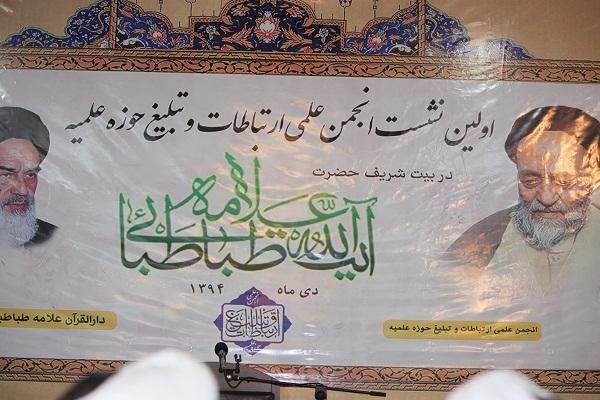 اولین نشست انجمن علمی ارتباطات و تبلیغ حوزه علمیه
در بیت شریف حضرت
علامه
آیت الله طباطبائی
دی ماه ۱۳۹۴
دارالقرآن علامه طباطبا
انجمن علمی ارتباطات و تبلیغ حوزه علمیه